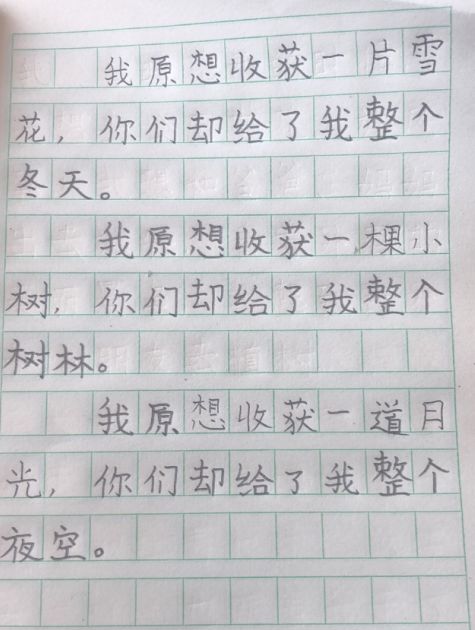 我原想收获一片雪
花，你们却给了我整个
冬天。
我原想收获一棵小
树，你们却给了我整个
树林。
我原想收获一道月
光，你们却给了我整个
夜空。